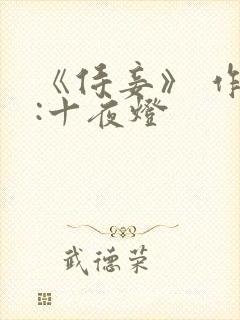 《侍妾》 作
:十夜燈
武德荣